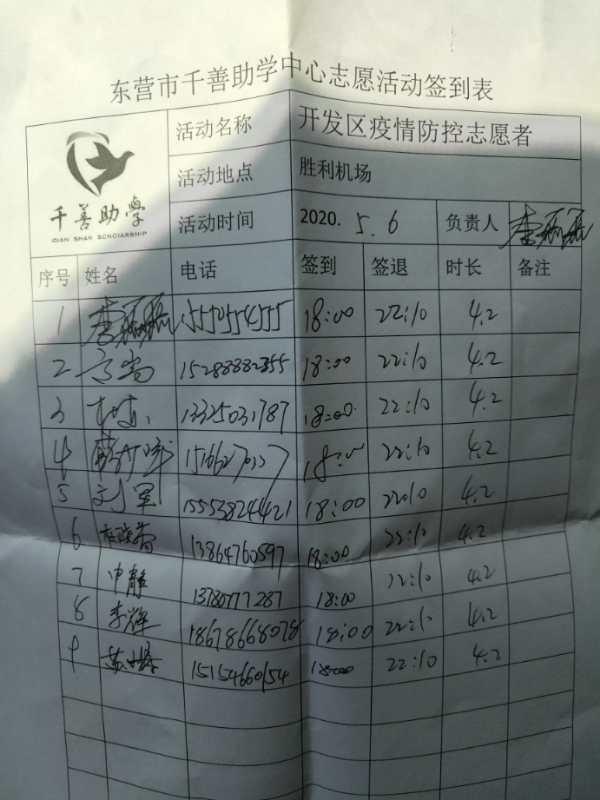 东营市千善助学中心志愿活动签到表
千善助学
QIAN SHAN SCHOLARSHIP
活动名称 开发区疫情防控志愿者
活动地点 胜利机场
活动时间 2020. 5.6 负责人 李
序号 姓名 电话 签到 签退 时长 备注
1 李 15550554555 18:00 22:10 4.2
2 15288882355 18:00 22:10 4.2
3 13325031787 18:00 22:10 4.2
4 18:00 22:10 4.2
5 刘军 15553824421 18:00 22:10 4.2
6 13864760597 18:00 22:10 4.2
7 申静 18:00 22:10 4.2
8 李辉 18678668078 18:00 22:10 4.2
9 15154660154 18:00 22:10 4.2